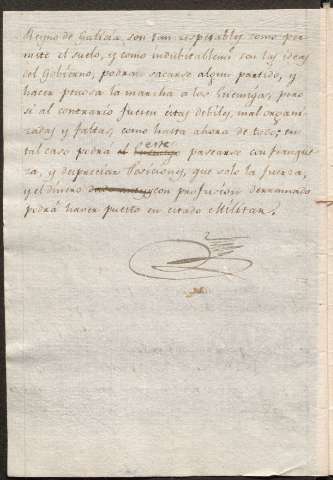 Reyno de Galicia, son tan respetables como per
mite el suelo, y como indubitablemte son las ideas
del Gobierno, podrán sacarse algun partido, y
hacer penosa la marcha a los Enemigos, pero
si al contrario fueren estas debiles, mal organi
zadas y faltas, como hasta ahora de todo; en
tal caso podra el Enemigo este pasearse con franque
za, y despreciar Posiciones, que solo la fuerza,
y el dinero con profusion derramado
podrá haver puesto en estado Militar.